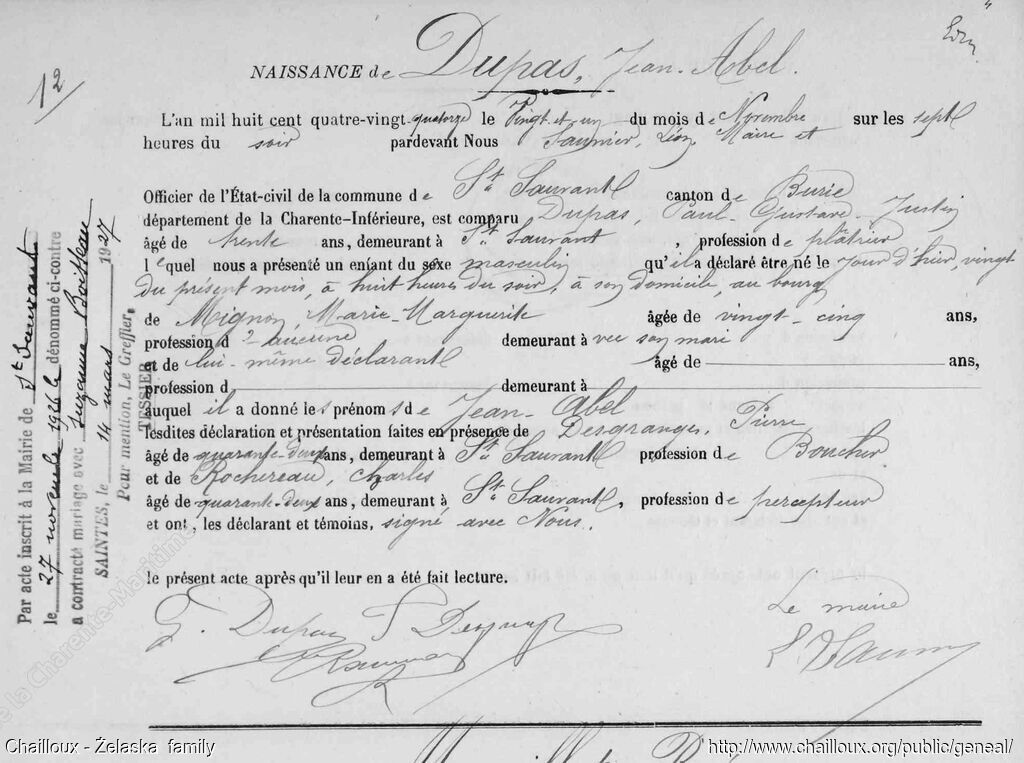 12
NAISSANCE de Dupas, Jean-Abel.
L'an mil huit cent quatre-vingt-quatorze le Vingt et un du mois de Novembre sur les sept
heures du soir pardevant Nous Saunier, Léon, Maire et
Officier de l'État-civil de la commune de St Sauvant canton de Burie
département de la Charente-Inférieure, est comparu Dupas, Paul-Gustave-Justin
âgé de trente ans, demeurant à St Sauvant, profession de plâtrier
lequel nous a présenté un enfant du sexe masculin qu'il a déclaré être né le Jour d'hier, vingt
du présent mois, à huit heures du soir, à son domicile, au bourg
de Mignon, Marie-Marguerite âgée de vingt-cinq ans,
profession d'aucune demeurant à vec son mari
et de lui-même déclarant âgé de ans,
profession d demeurant à
auquel il a donné les prénoms de Jean-Abel
lesdites déclaration et présentation faites en présence de Desgranges, Pierre
âgé de quarante-deux ans, demeurant à St Sauvant profession de Boucher
et de Rochereau, Charles
âgé de quarante-deux ans, demeurant à St Sauvant, profession de percepteur
et ont, les déclarant et témoins, signé avec Nous.
le présent acte après qu'il leur en a été fait lecture.
Le maire
G. Dupas
Par acte inscrit à la Mairie de St Sauvant
le 27 novembre 1926 le dénommé ci-contre
a contracté mariage avec Suzanne
SAINTES, le 14 mars 1927
Pour mention, Le Greffier,
TESSIER
de la Charente-Maritime
Chailloux - Želaska family
http://www.chailloux.org/public/geneal/